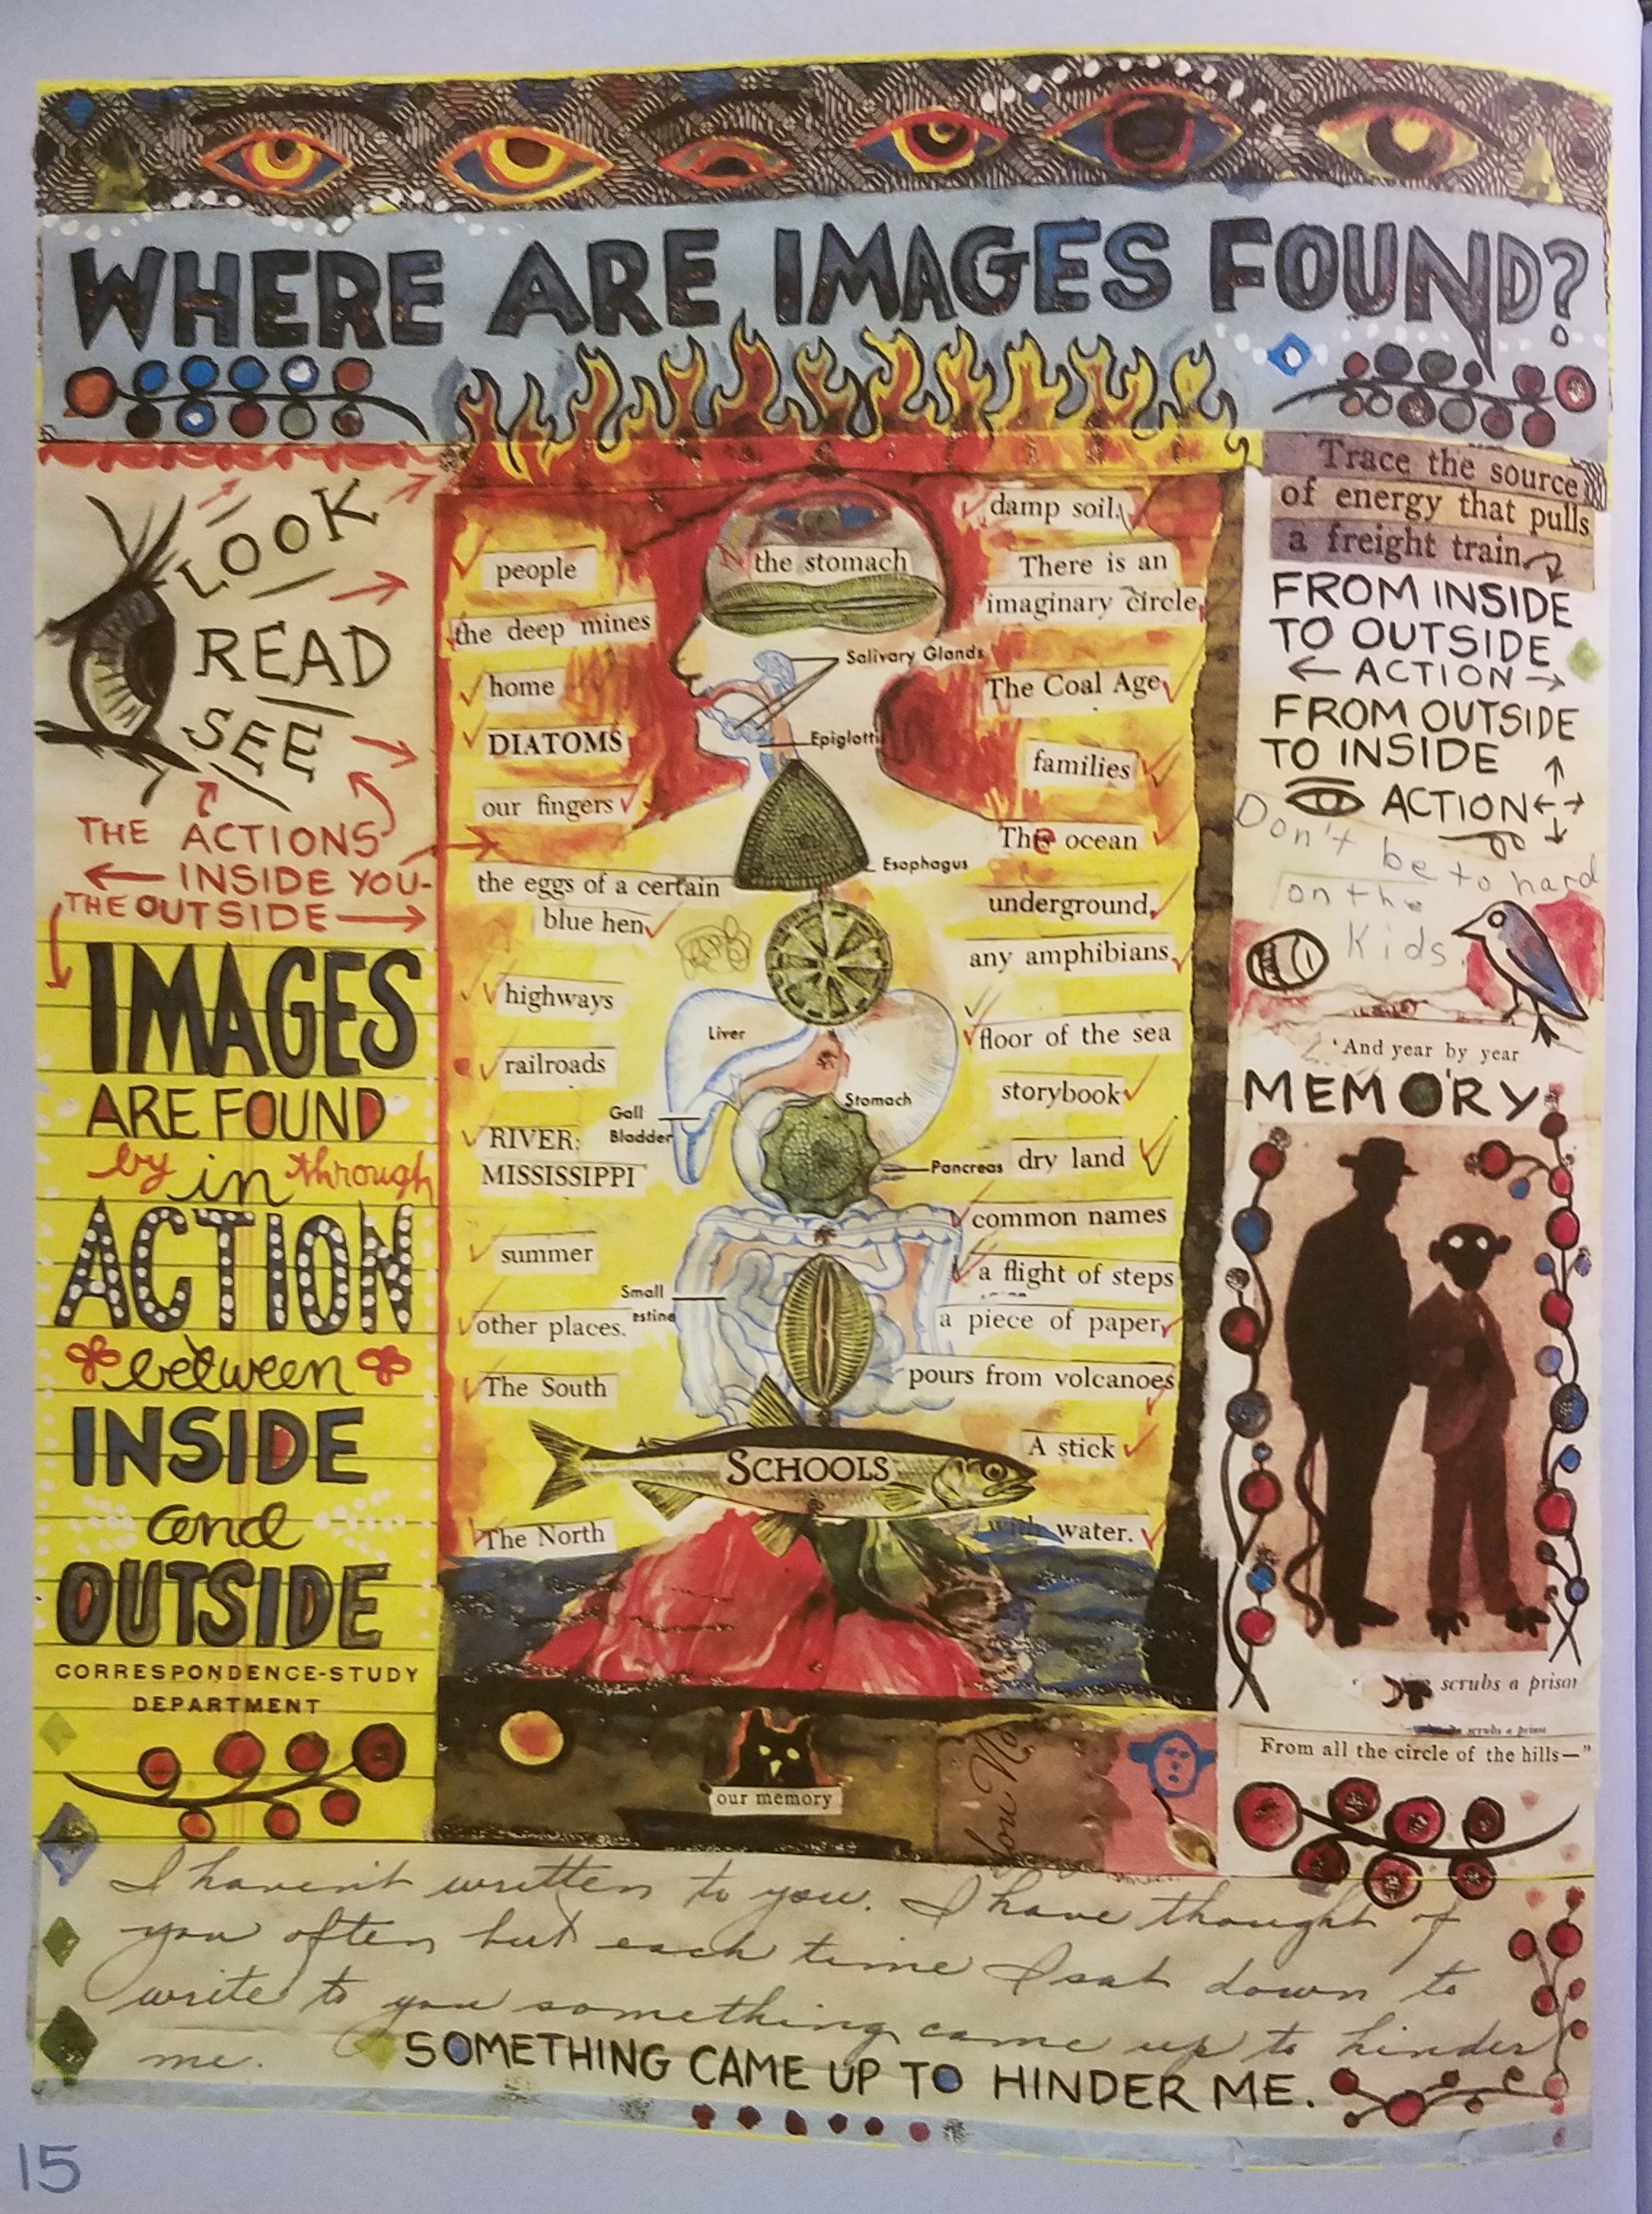 WHERE ARE IMAGES FOUND?
LOOK
READ
SEE
THE ACTIONS
INSIDE YOU-
THE OUTSIDE
IMAGES
ARE FOUND
by in through
ACTION
between
INSIDE
and
OUTSIDE
CORRESPONDENCE-STUDY
DEPARTMENT
people
the deep mines
home
DIATOMS
our fingers
the eggs of a certain
blue hen
highways
railroads
RIVER:
MISSISSIPPI
summer
other places.
The South
The North
the stomach
Salivary Glands
Epiglotti
Esophagus
Liver
Gall
Bladder
Stomach
Pancreas
Small
estine
SCHOOLS
damp soil
There is an
imaginary circle
The Coal Age
families
The ocean
underground,
any amphibians
floor of the sea
storybook
dry land
common names
a flight of steps
a piece of paper
pours from volcanoes
A stick
with water.
our memory
You No
Trace the source
of energy that pulls
a freight train
FROM INSIDE
TO OUTSIDE
ACTION
FROM OUTSIDE
TO INSIDE
ACTION
Don't be to hard
on the
Kids.
'And year by year
MEMORY
scrubs a prison
scrubs a prison
From all the circle of the hills—"
I haven't written to you. I have thought of
you often but each time I sat down to
write to you something came up to hinder
me.
SOMETHING CAME UP TO HINDER ME.
15